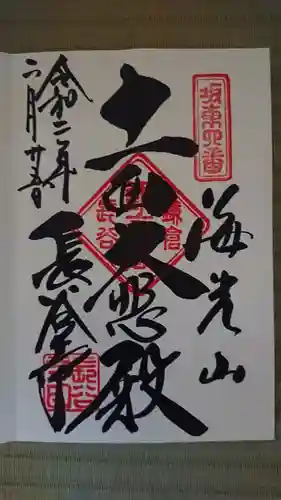 坂東四番
海光山
十一面大悲殿
鎌倉
長谷
長谷寺
令和二年
二月廿五日